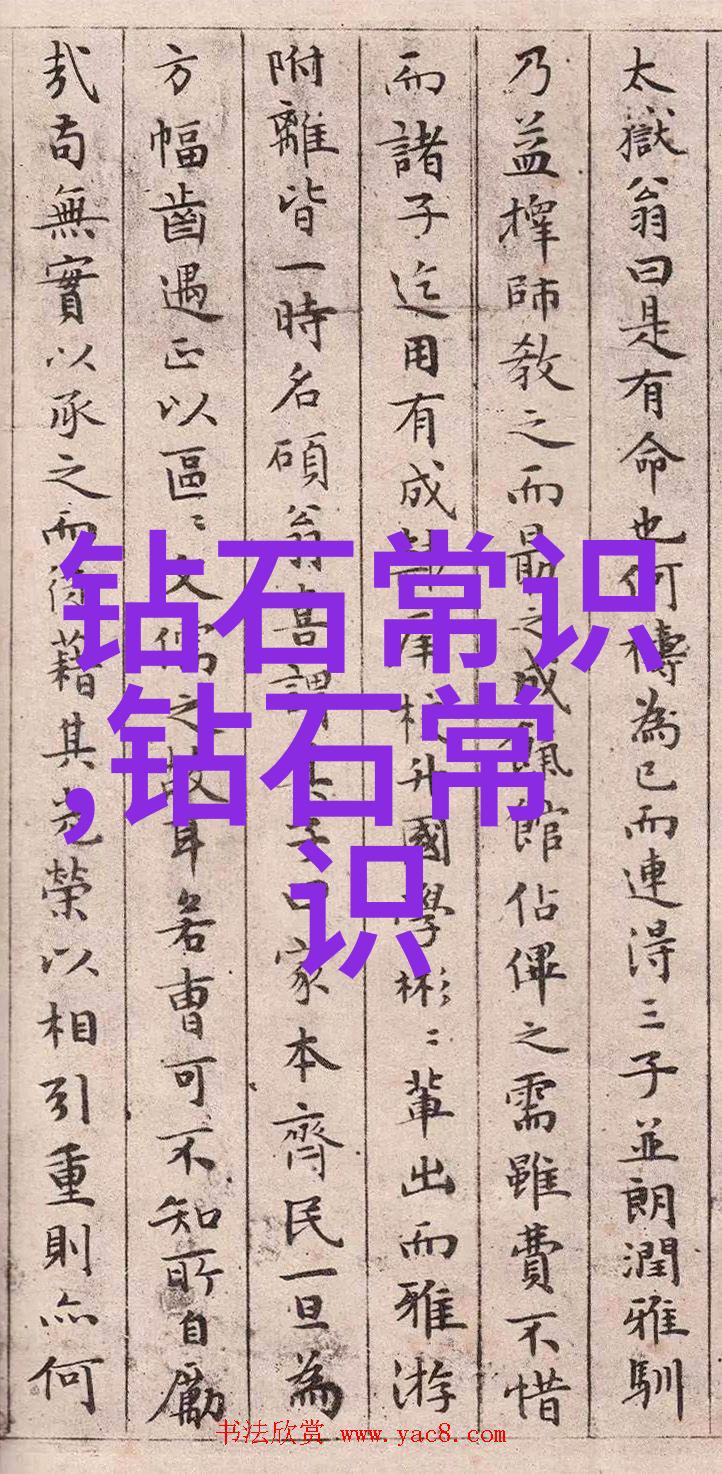 太嶽翁曰是有命也何 為已而連得三子並朗潤雅馴
乃益擇師教之而最之成 館佔俾之需雖費不惜
而諸子迄用有成 升國學彬彬輩出而雅游
附離皆一時名碩翁喜謂 家本齊民一旦為
方幅齒遇正以區區文儒之故耳若曹可不知所自勵
哉苟無實以承之而 藉其 榮以相引重則亦何
钻石常识
,钻石常
识
书法欣赏 www.yac8.com